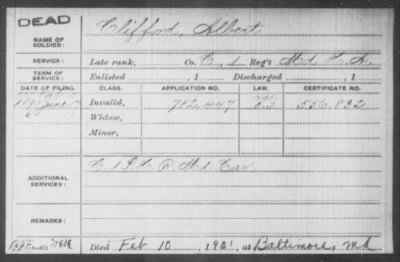 DEAD
NAME OF SOLDIER: Clifford, Albert
SERVICE: Late rank, Co. C, 1 Reg't Md. L. A.
TERM OF SERVICE: Enlisted , 1 Discharged , 1
DATE OF FILING. CLASS. APPLICATION NO. LAW. CERTIFICATE NO.
1890 June 17 Invalid, 712.447 556.832
Widow,
Minor,
ADDITIONAL SERVICES: Md Cav.
REMARKS:
Died Feb 10, 1921 at Baltimore, Md